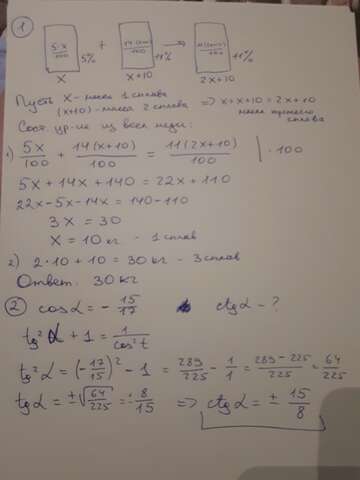 ①
5x/100 5% + 14(x+10)/100 11% → 11(2x+10)/100 11%
x x+10 2x+10
Пусть x - масса 1 сплава
(x+10) - масса 2 сплава ⇒ x+x+10=2x+10
масса третьего сплава
Сост. ур-ие из всей меди:
1) 5x/100 + 14(x+10)/100 = 11(2x+10)/100 | · 100
5x + 14x + 140 = 22x + 110
22x - 5x - 14x = 140 - 110
3x = 30
x = 10 кг - 1 сплав
2) 2·10 + 10 = 30 кг - 3 сплав
Ответ: 30 кг
② cosα = - 15/17 ctgα - ?
tg²α + 1 = 1/cos²t
tg²α = (-17/15)² - 1 = 289/225 - 1/1 = 289-225/225 = 64/225
tgα = ±√64/225 = ± 8/15 ⇒ ctgα = ± 15/8